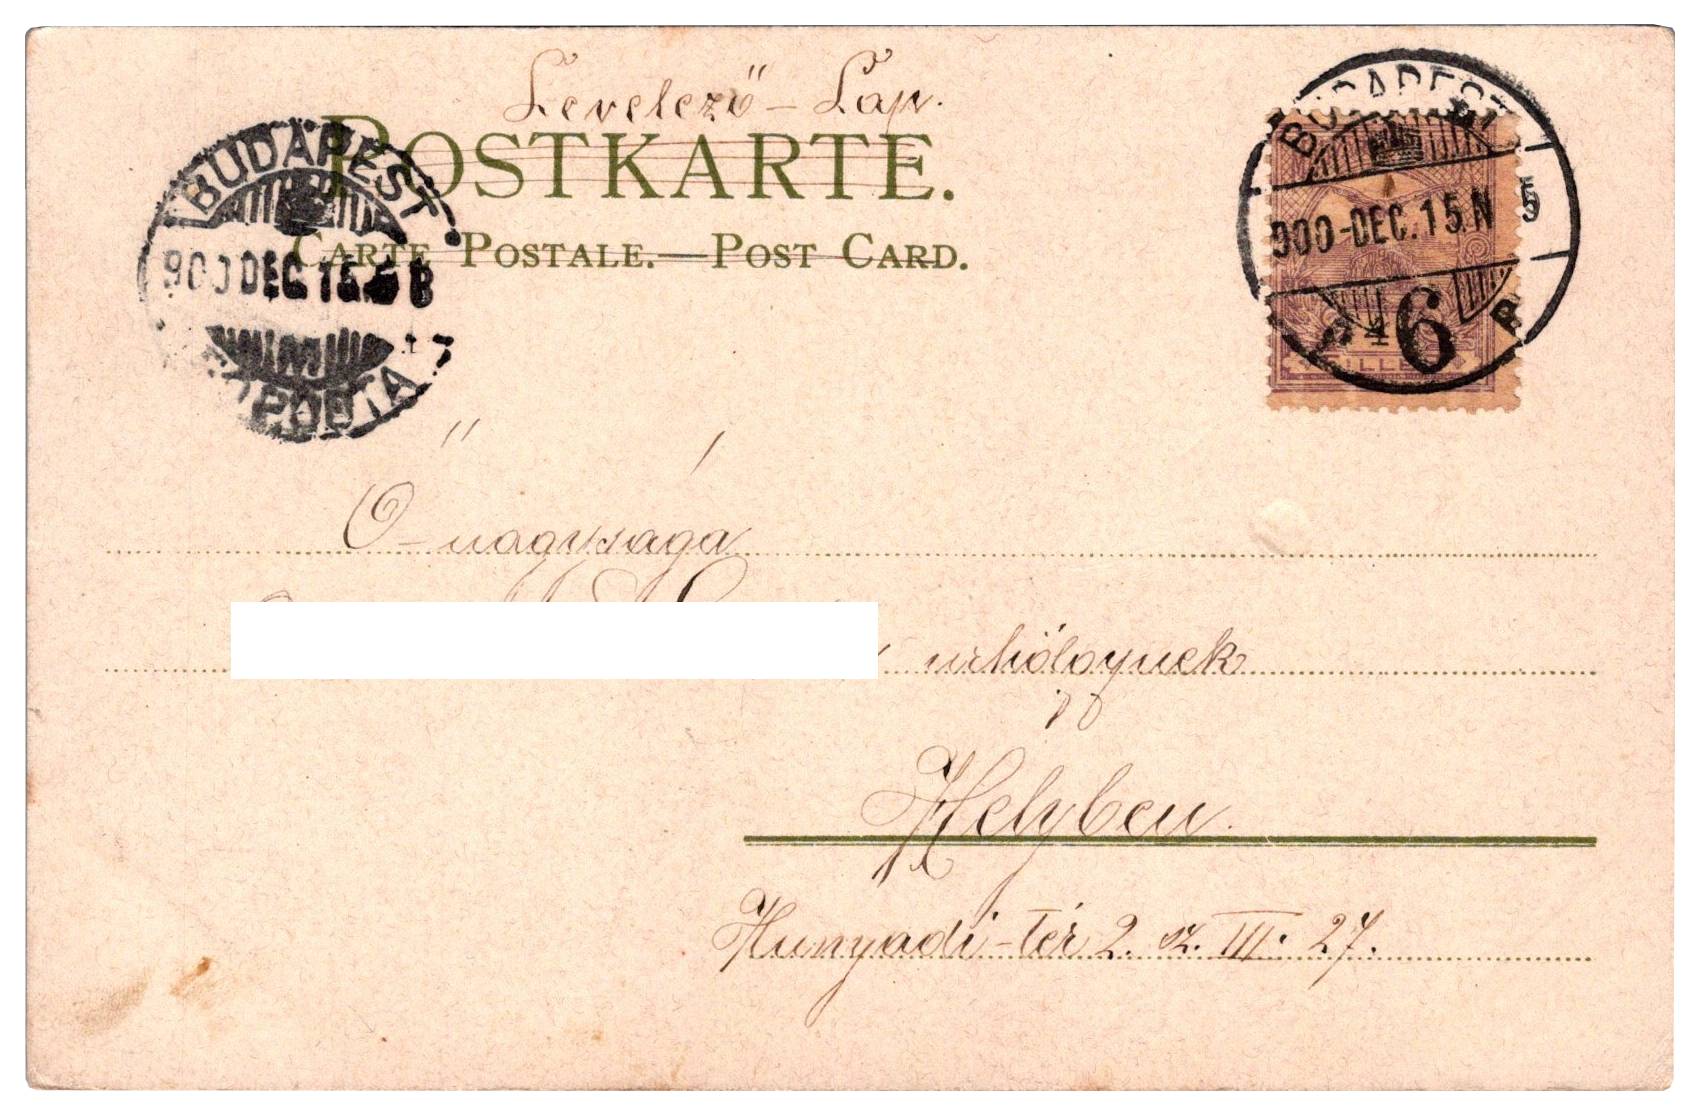 Levelező-Lap.
POSTKARTE.
CARTE POSTALE.—POST CARD.
BUDAPEST
900 DEC. 15. B
M
BUDAPEST
900-DEC. 15. N
6
Ő-nagysága
úrhölgynek
Helyben.
Hunyadi-tér 2. sz. III. 27.